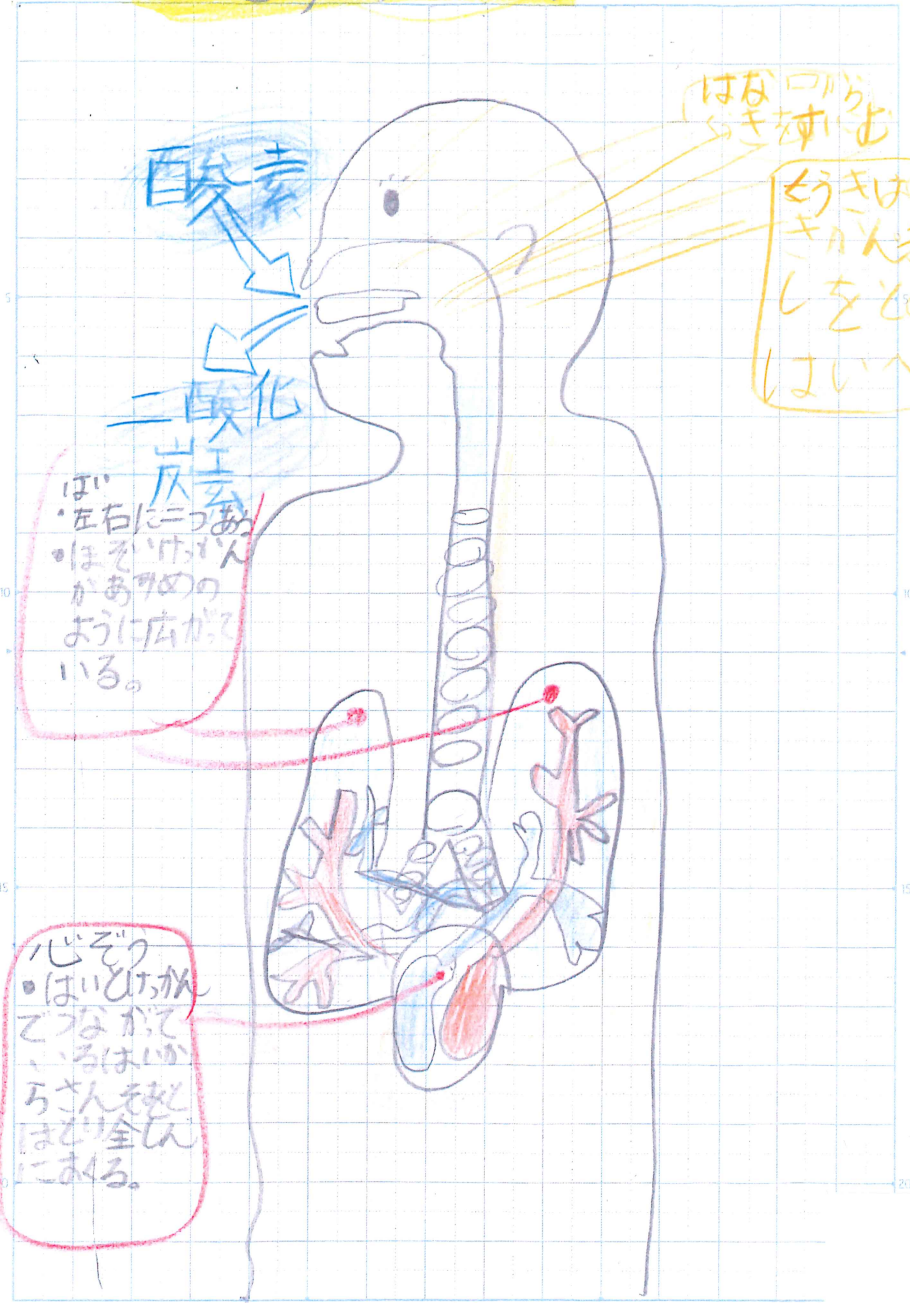 酸素
はな口から
くうきをすいこむ
くうきは
きかん
しをと
はいへ
二酸化
炭素
はい
・左右に二つある
・ほそいけっかん
があみめの
ように広がって
いる。
心ぞう
・はいとけっかん
でつながって
いるはいか
らさんそを
とり全しん
におくる。